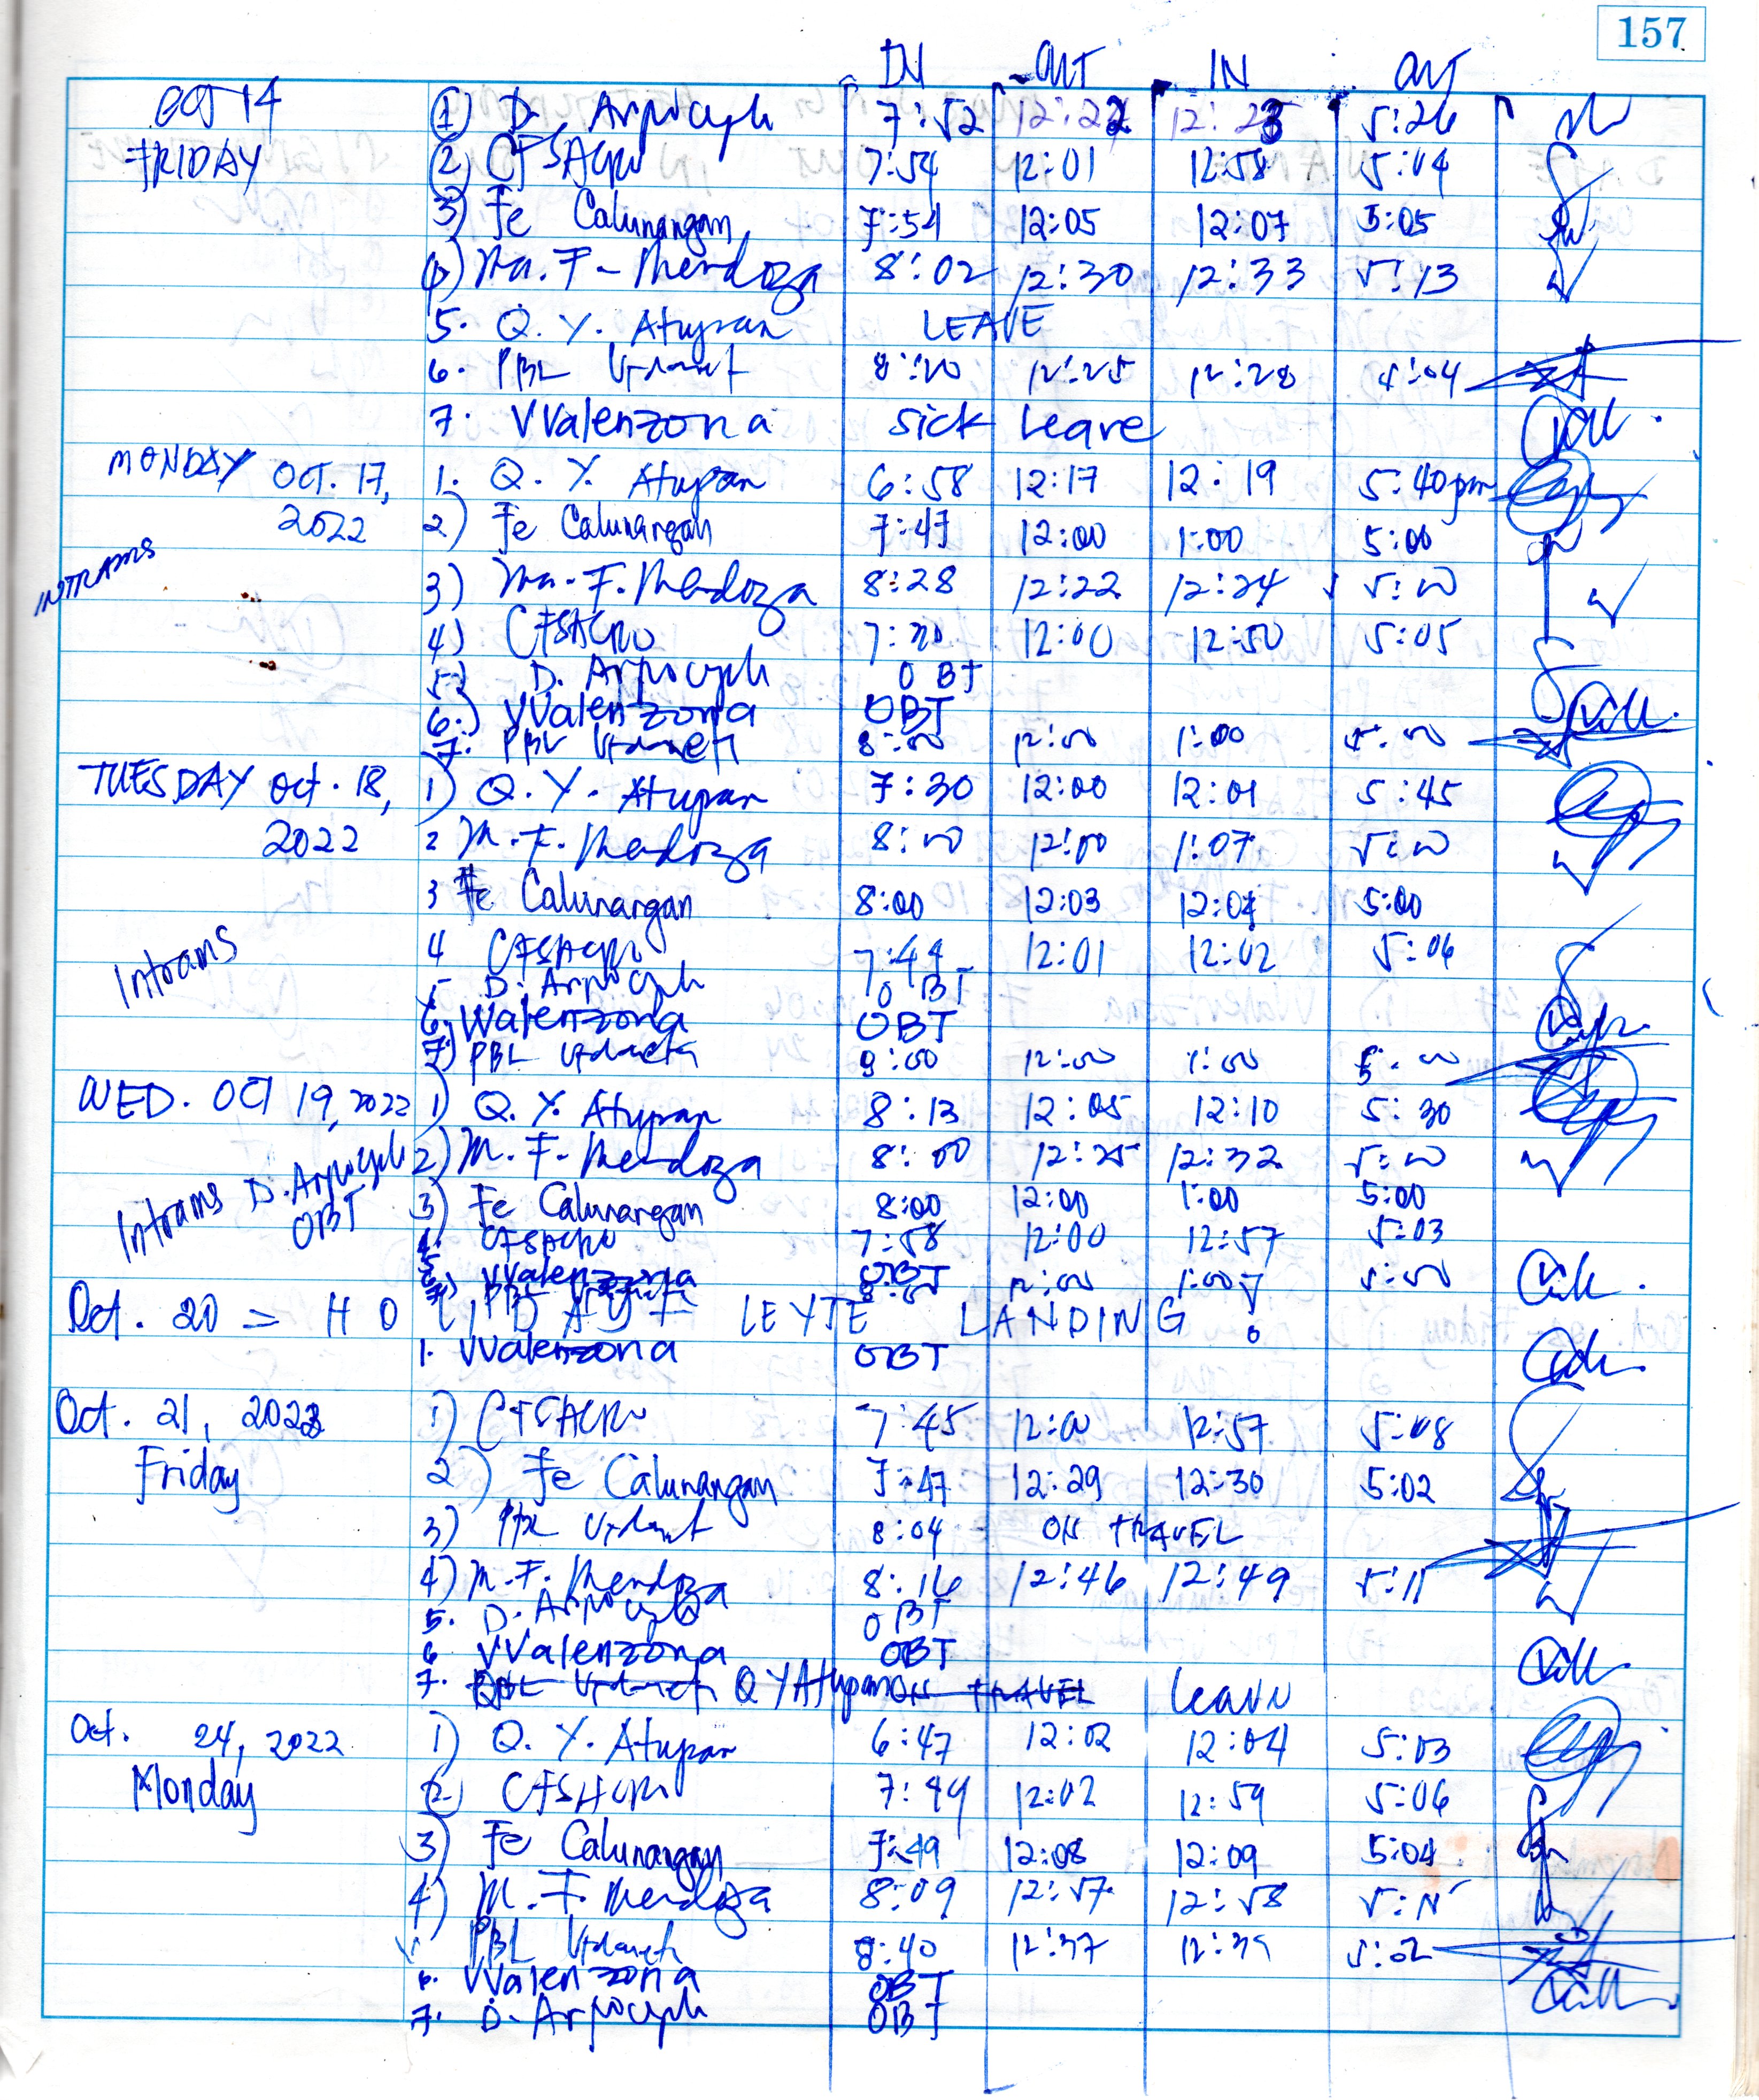 157
IN OUT IN OUT
OCT 14 1) D. Arpocyph 7:52 12:22 12:23 5:26
FRIDAY 2) CFSACRO 7:54 12:01 12:58 5:04
3) Fe Calunangan 7:54 12:05 12:07 5:05
4) Ma. F. Mendoza 8:02 12:30 12:33 5:13
5. Q. Y. Atupan LEAVE
6. PBL 8:20 12:25 12:28 5:04
7. VValenzona Sick Leave
MONDAY OCT. 17, 1. Q. Y. Atupan 6:58 12:17 12:19 5:40pm
2022 2) Fe Calunangan 7:47 12:00 1:00 5:00
INTRAMS
3) Ma. F. Mendoza 8:28 12:22 12:24 5:00
4) CFSACRO 7:30 12:00 12:50 5:05
5) D. Arpocyph OBT
6.) VValenzona OBT
7. PBL 8:00 12:00 1:00 5:00
TUESDAY Oct. 18, 1) Q. Y. Atupan 7:30 12:00 12:01 5:45
2022 2 M. F. Mendoza 8:00 12:00 1:07 5:00
3 Fe Calunangan 8:00 12:03 12:04 5:00
Intrams 4 CFSACRO 7:44 12:01 12:02 5:06
5 D. Arpocyph OBT
6. VValenzona OBT
7) PBL 8:00 12:00 1:00 5:00
WED. OCT 19, 2022 1) Q. Y. Atupan 8:13 12:05 12:10 5:30
2) M. F. Mendoza 8:00 12:25 12:32 5:00
Intrams D. Arpocyph OBT 3) Fe Calunangan 8:00 12:00 1:00 5:00
4. CFSACRO 7:58 12:00 12:57 5:03
5 VValenzona OBT
PBL 12:00 1:00 5:00
Oct. 20 = HOLIDAY = LEYTE LANDING!
1. VValenzona OBT
Oct. 21, 2022 1) CFSACRO 7:45 12:00 12:57 5:08
Friday 2) Fe Calunangan 7:47 12:29 12:30 5:02
3) PBL 8:04 ON TRAVEL
4) M. F. Mendoza 8:16 12:46 12:49 5:11
5. D. Arpocyph OBT
6 VValenzona OBT
7. PBL Q Y Atupan ON TRAVEL leave
Oct. 24, 2022 1) Q. Y. Atupan 6:47 12:02 12:04 5:03
Monday 2) CFSACRO 7:49 12:02 12:59 5:06
3) Fe Calunangan 7:49 12:08 12:09 5:04
4) M. F. Mendoza 8:09 12:57 12:58
5 PBL 8:40 12:37 12:39 5:02
6. VValenzona OBT
7. D. Arpocyph OBT